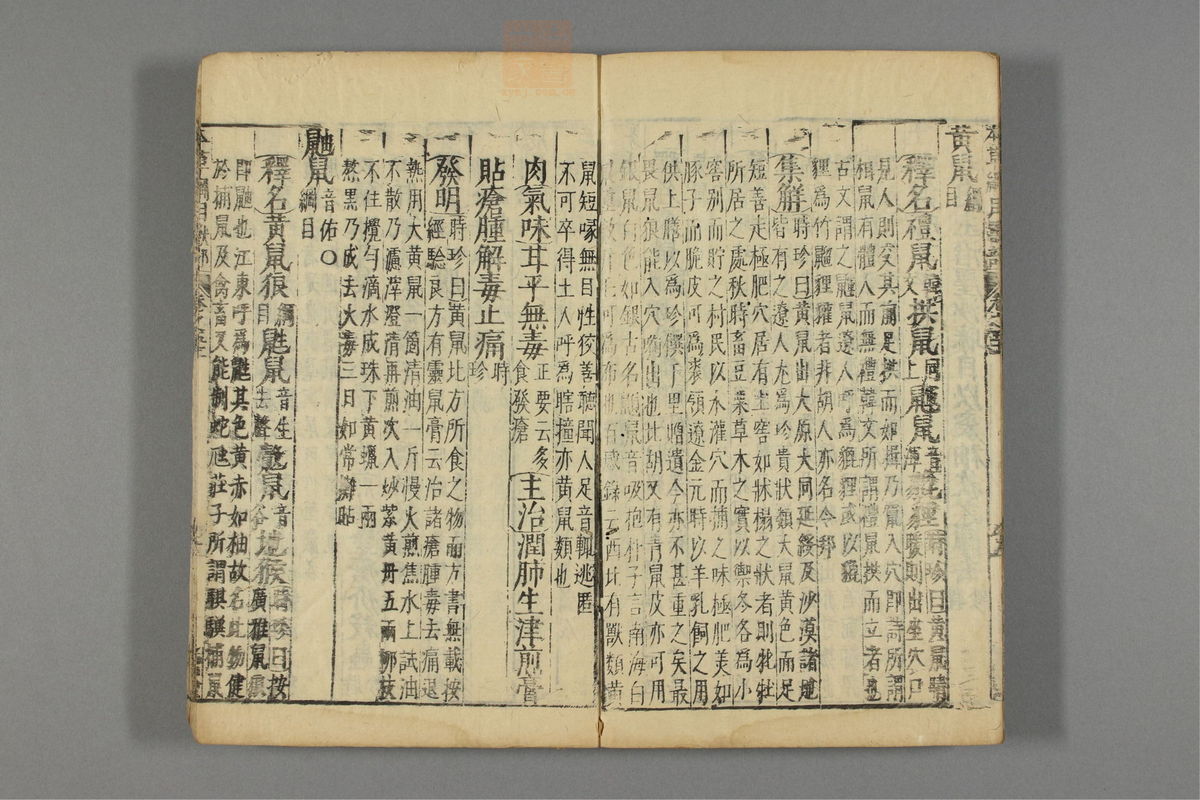 黃鼠綱目
釋名禮鼠韓文拱鼠同上鼲鼠音渾貔狸時珍曰黃鼠晴
暖則出坐穴口
見人則交其前足拱而如揖乃竄入穴即詩所謂
相鼠有體人而無禮韓文所謂禮鼠拱而立者也
古文謂之鼲鼠遼人呼為貔狸或以貔
狸為竹䶉狸獾者非胡人亦名令邦
集解時珍曰黃鼠出太原大同延綏及沙漠諸地
皆有之遼人尤為珍貴狀類大鼠黃色而足
短善走極肥穴居有土窖如牀榻之狀者則牝牡
所居之處秋時畜豆粟草木之實以禦冬各為小
窖別而貯之村民以水灌穴而捕之味極肥美如
豚子而脆皮可為裘領遼金元時以羊乳飼之用
供上膳以為珍饌千里贈遺今亦不甚重之矣最
畏鼠狼能入穴啣出也北胡又有青鼠皮亦可用
銀鼠白色如銀古名鼠音吸抱朴子言南海白
鼠重數斤毛可為布也百感錄云西北有獸類黃
鼠短喙無目性狡善聽聞人足音輒逃匿
不可卒得土人呼為瞎撞亦黃鼠類也
肉氣味甘平無毒正要云多食發瘡主治潤肺生津煎膏
貼瘡腫解毒止痛時珍
發明時珍曰黃鼠北方所食之物而方書無載按
經驗良方有靈鼠膏云治諸瘡腫毒去痛退
熱用大黃鼠一箇清油一斤慢火煎焦水上試油
不散乃濾滓澄清再煎次入炒紫黃丹五兩柳枝
不住攪勻滴水成珠下黃蠟一兩
熬黑乃成去火毒三日如常攤貼
鼬鼠音佑○綱目
釋名黃鼠狼綱目鼪鼠音生去聲鼠音谷地猴時珍曰按
廣雅鼠狼
即鼬也江東呼為鼪其色黃赤如柚故名此物健
於捕鼠及禽畜又能制蛇虺莊子所謂騏驥捕鼠